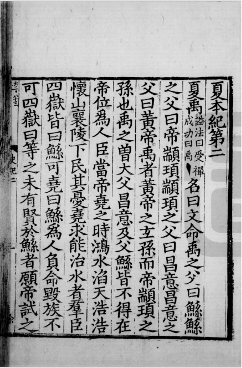 夏本紀第二
夏禹謚法曰受禪成功曰禹名曰文命禹之父曰鯀鯀
之父曰帝顓頊顓頊之父曰昌意昌意之
父曰黃帝禹者黃帝之玄孫而帝顓頊之
孫也禹之曾大父昌意及父鯀皆不得在
帝位為人臣當帝堯之時鴻水滔天浩浩
懷山襄陵下民其憂堯求能治水者羣臣
四嶽皆曰鯀可堯曰鯀為人負命毀族不
可四嶽曰等之未有賢於鯀者願帝試之